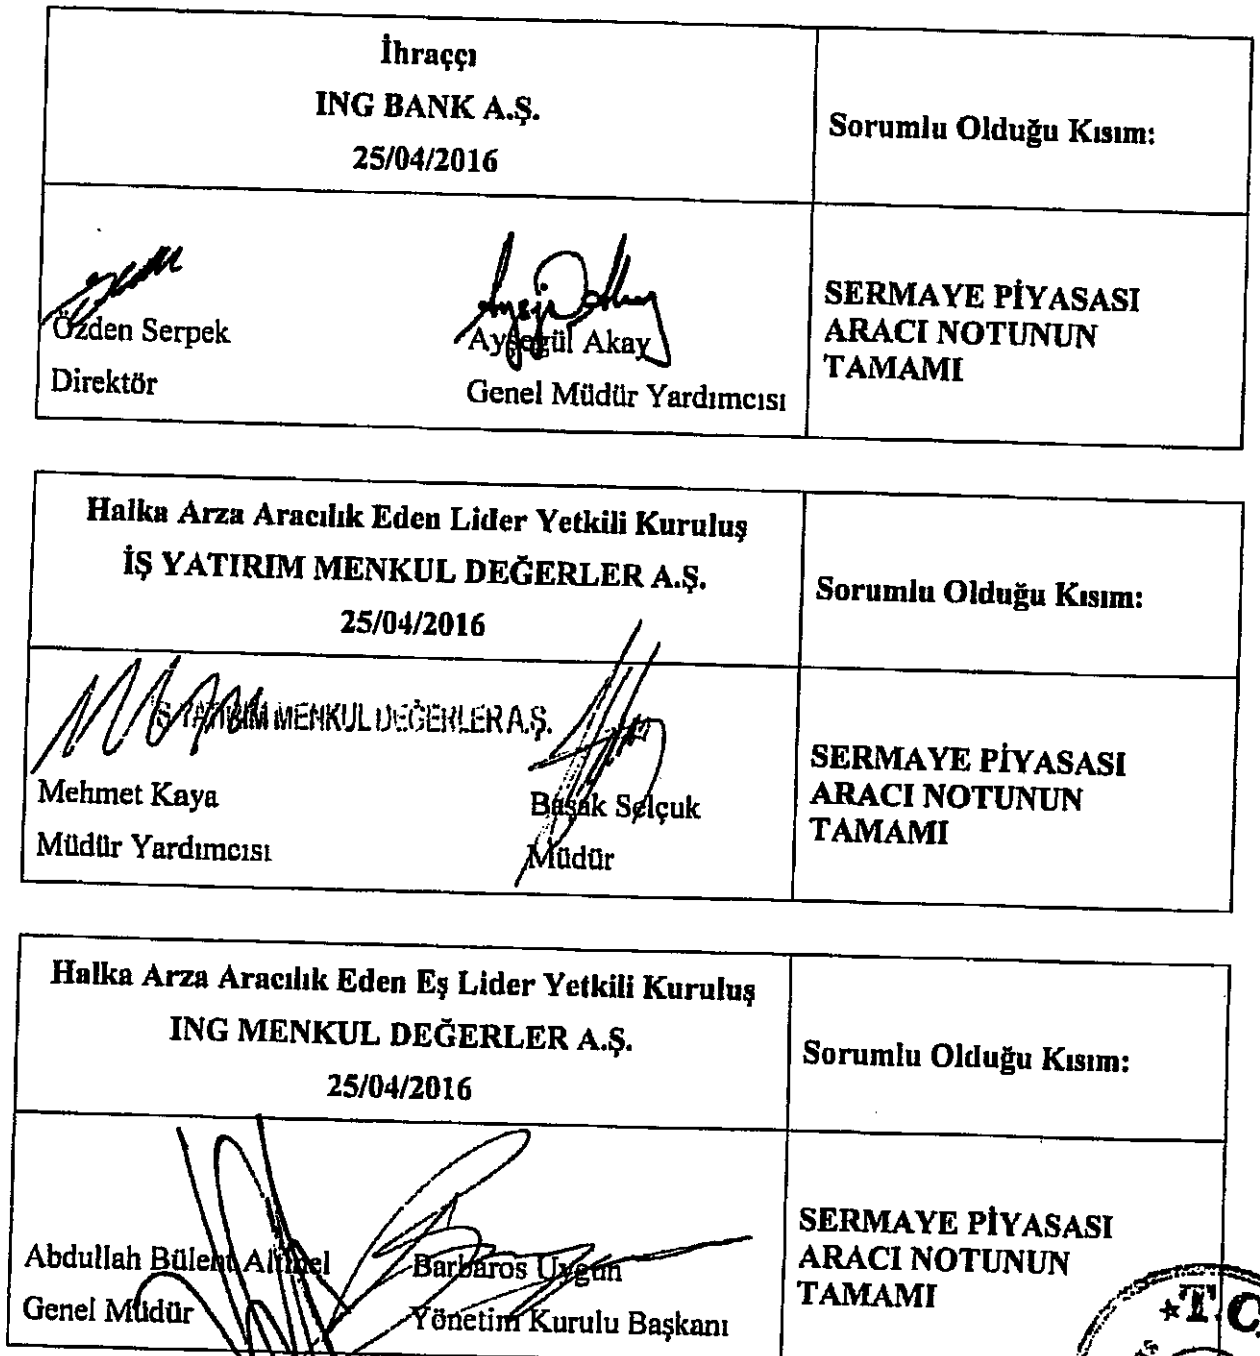 İhraççı
ING BANK A.Ş.
25/04/2016
Sorumlu Olduğu Kısım:
Özden Serpek
Direktör
Ayşegül Akay
Genel Müdür Yardımcısı
SERMAYE PİYASASI
ARACI NOTUNUN
TAMAMI
Halka Arza Aracılık Eden Lider Yetkili Kuruluş
İŞ YATIRIM MENKUL DEĞERLER A.Ş.
25/04/2016
Sorumlu Olduğu Kısım:
İŞ YATIRIM MENKUL DEĞERLER A.Ş.
Mehmet Kaya
Müdür Yardımcısı
Başak Selçuk
Müdür
SERMAYE PİYASASI
ARACI NOTUNUN
TAMAMI
Halka Arza Aracılık Eden Eş Lider Yetkili Kuruluş
ING MENKUL DEĞERLER A.Ş.
25/04/2016
Sorumlu Olduğu Kısım:
Abdullah Bülent Altınel
Genel Müdür
Barbaros Uygun
Yönetim Kurulu Başkanı
SERMAYE PİYASASI
ARACI NOTUNUN
TAMAMI
T.C